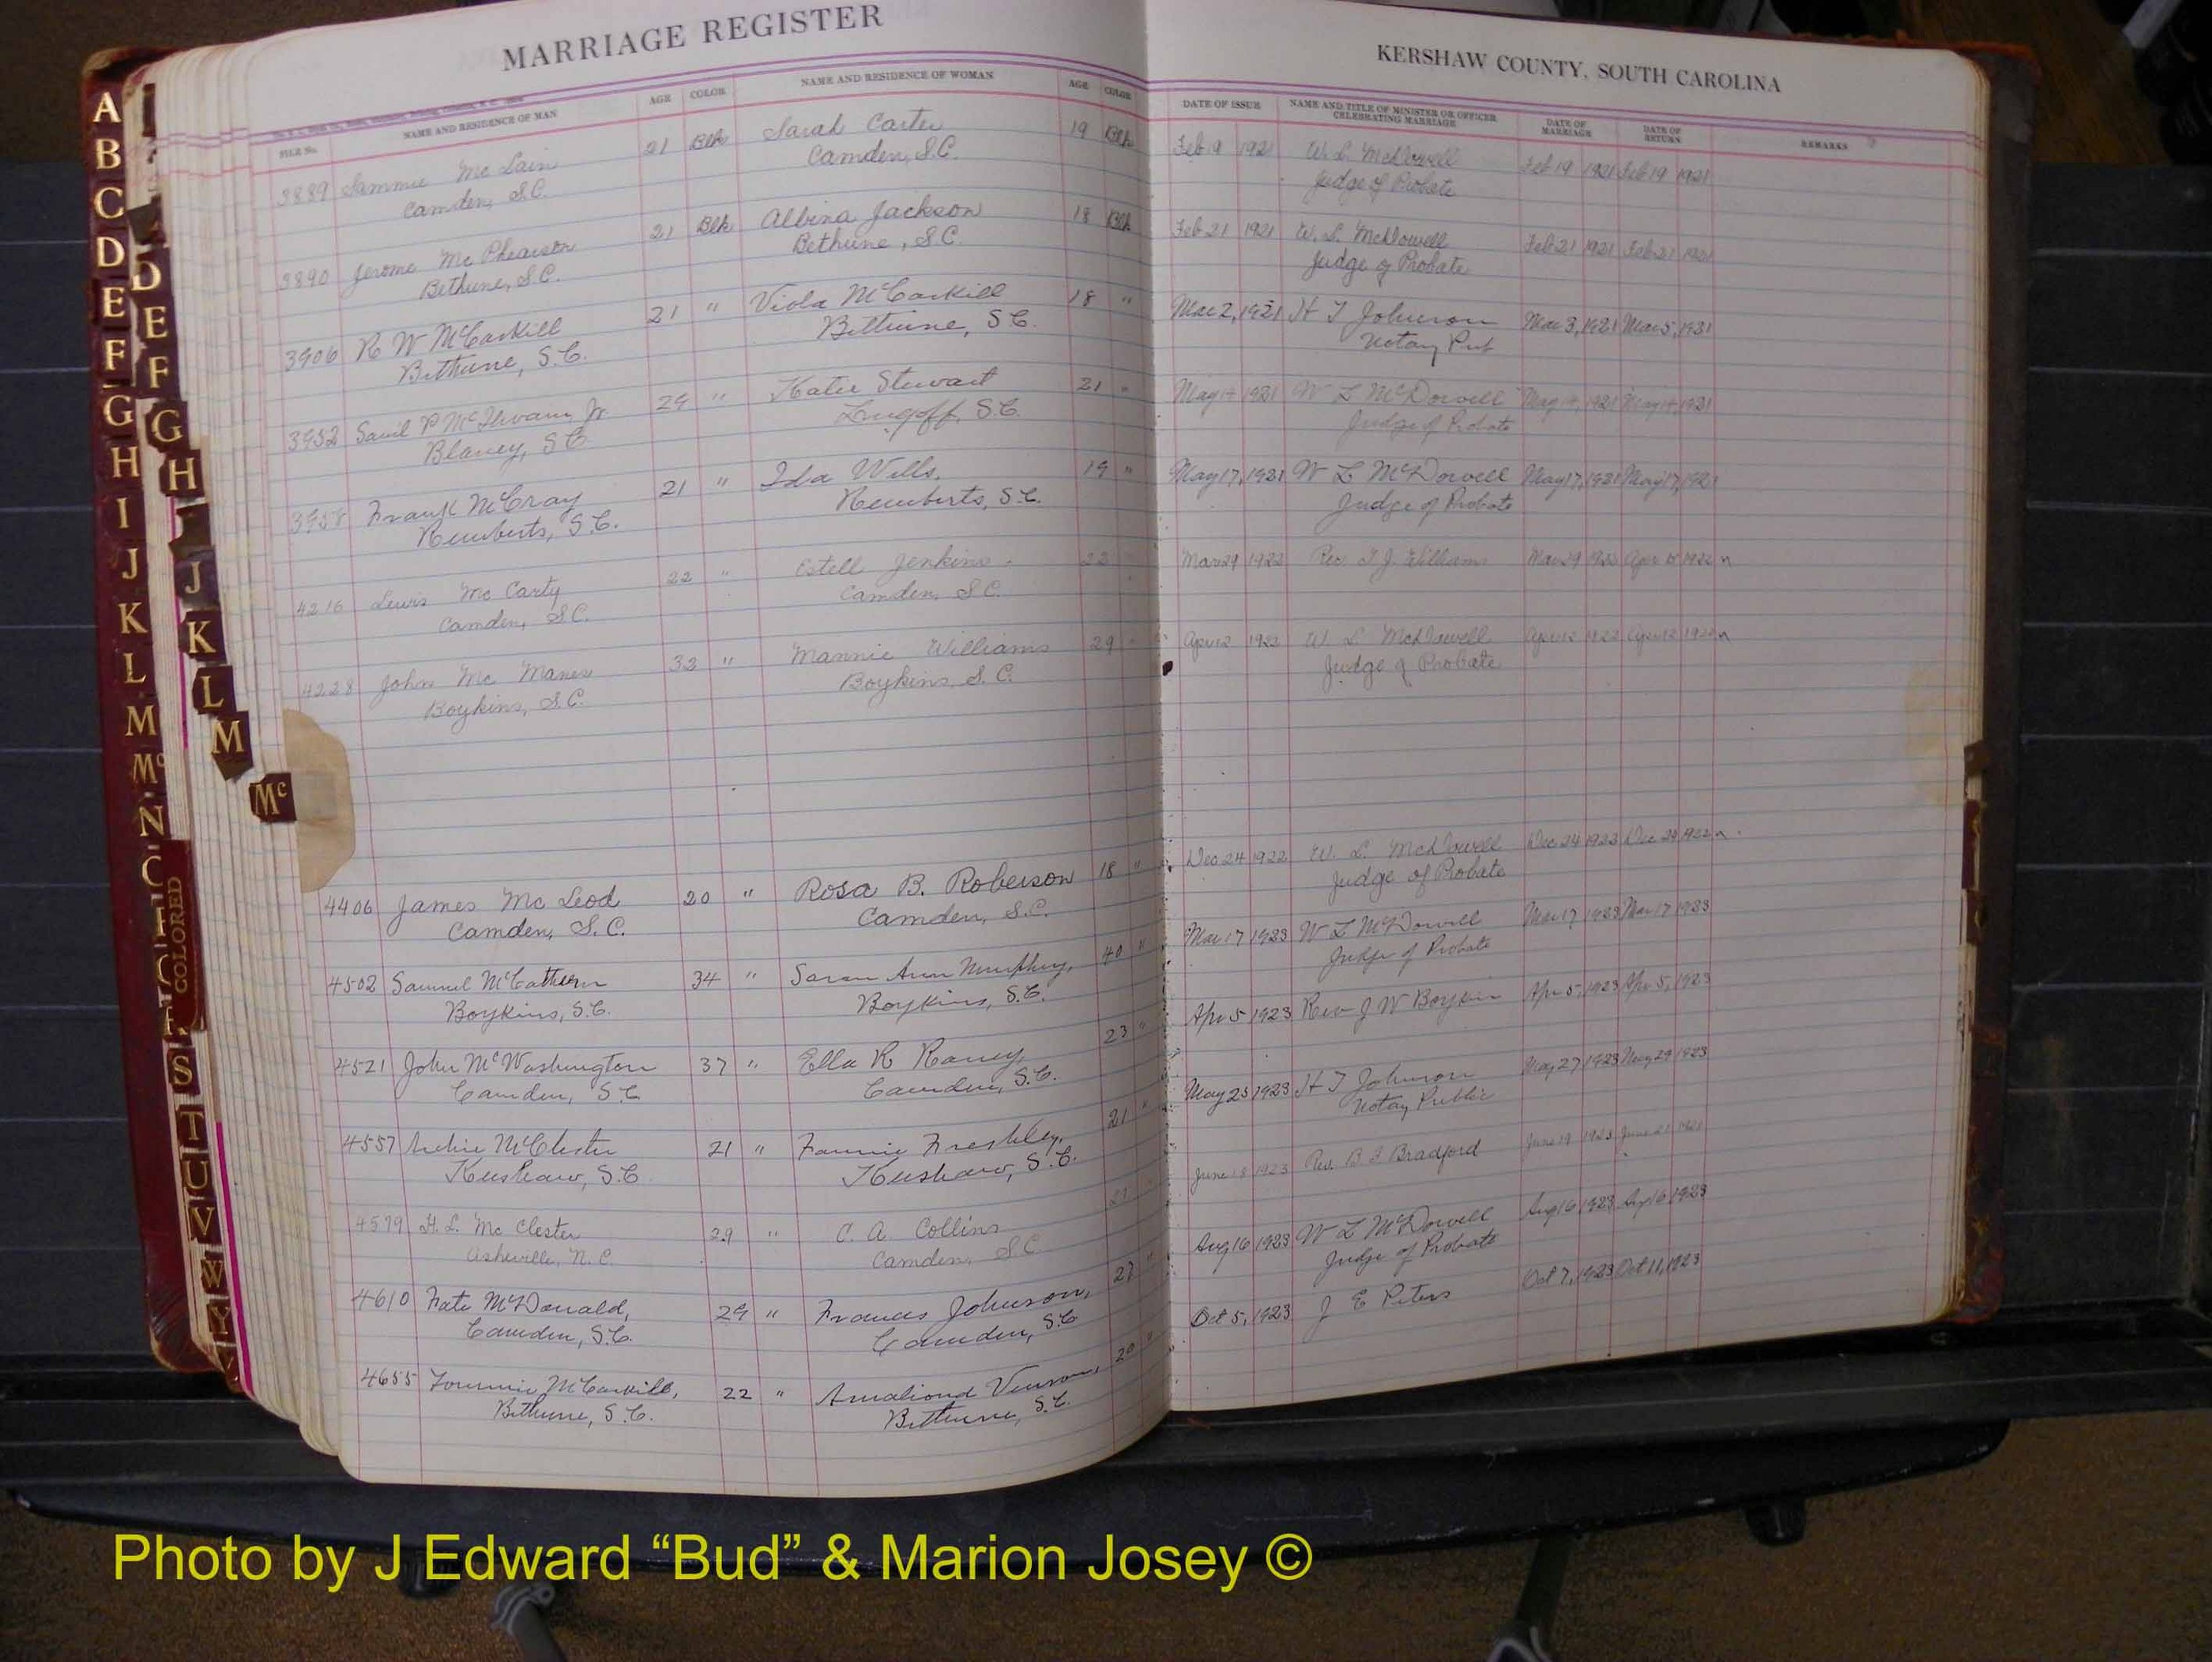 MARRIAGE REGISTER
KERSHAW COUNTY, SOUTH CAROLINA
FILE No. NAME AND RESIDENCE OF MAN AGE COLOR NAME AND RESIDENCE OF WOMAN AGE COLOR DATE OF ISSUE NAME AND TITLE OF MINISTER OR OFFICER CELEBRATING MARRIAGE DATE OF MARRIAGE DATE OF RETURN REMARKS
3889 Sammie Mc Lain 21 Blk Sarah Carter 19 Blk Feb 19 1921 W. L. McDowell Feb 19 1921 Feb 19 1921
Camden, S.C. Camden, S.C. Judge of Probate
3890 Jerome Mc Phearson 21 Blk Albina Jackson 18 Blk Feb 21 1921 W. L. McDowell Feb 21 1921 Feb 21 1921
Bethune, S.C. Bethune, S.C. Judge of Probate
3906 R W McCaskill 21 " Viola McCaskill 18 " Mar 2, 1921 H T Johnson Mar 3, 1921 Mar 5, 1921
Bethune, S.C. Bethune, S.C. Notary Pub
3952 P McIlwain Jr 29 " Katie Stewart 21 " May 14 1921 W L McDowell May 14, 1921 May 14, 1921
Blaney, S C Lugoff, S.C. Judge of Probate
3958 Frank McCray 21 " Ida Wells, 19 " May 17, 1921 W L McDowell May 17, 1921 May 17, 1921
Remberts, S.C. Remberts, S.C. Judge of Probate
4216 Lewis Mc Carty 22 " Estell Jenkins 22 " Mar 29 1922 Rev. Williams Mar 29 1922 Apr 1922
Camden, S.C. Camden, S.C.
4228 John Mc Manes 33 " Mannie Williams 29 " Apr 12 1922 W. L. McDowell Apr 12 1922 Apr 12 1922
Boykins, S.C. Boykins, S.C. Judge of Probate
4406 James Mc Leod 20 " Rosa B. Roberson 18 " Dec 24 1922 W. L. McDowell Dec 24 1922 Dec 24 1922
Camden, S.C. Camden, S.C. Judge of Probate
4502 Samuel 34 " Sarah Ann Murphy, 40 " Mar 17 1923 W L McDowell Mar 17, 1923 Mar 17 1923
Boykins, S.C. Boykins, S.C. Judge of Probate
4521 John McWashington 37 " Ella R Raney, 23 " Apr 5 1923 Rev J W Boykin Apr 5, 1923 Apr 5, 1923
Camden, S C Camden, S.C.
4557 Archie McClester 21 " Fannie 21 " May 25 1923 H T Johnson May 27 1923 May 29 1923
Kershaw, S.C. Kershaw, S.C. Notary Public
4579 Mc Clester 29 " C. A. Collins June 18 1923 Rev. Bradford June 19 1923 June 21
Asheville, N.C. Camden, S C
4610 Fate McDonald, 29 " Frances Johnson, 27 " Aug 16 1923 W L McDowell Aug 16 1923 Aug 16 1923
Camden, S.C. Camden, S.C Judge of Probate
4655 Tommie McCaskill, 22 " Vinson, 20 " Oct 5, 1923 J E Peters Oct 7, 1923 Oct 11, 1923
Bethune, S.C. Bethune, S.C.
A
B
C
D
E
F
G
H
I
J
K
L
M
Mc
N
S
T
U
V
W
Y
D
E
F
G
H
J
K
L
M
Mc
COLORED
Photo by J Edward “Bud” & Marion Josey ©